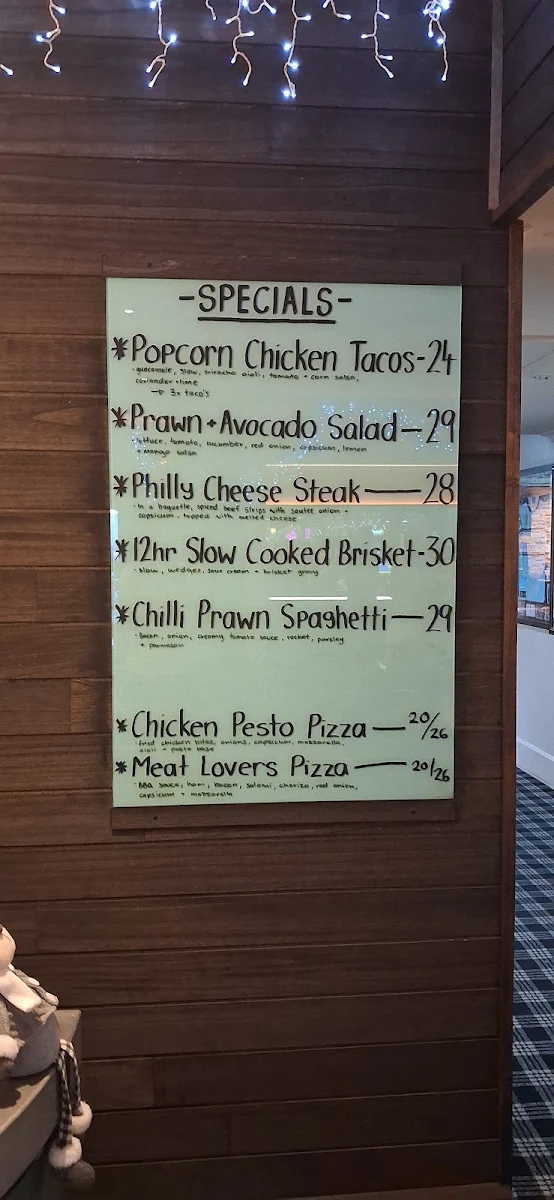 -SPECIALS-
*Popcorn Chicken Tacos-24
- guacamole, slaw, sriracha aioli, tomato + corn salsa,
coriander + lime
→ 3x taco's
*Prawn+Avocado Salad—29
lettuce, tomato, cucumber, red onion, capsicum, lemon
+ mango salsa
*Philly Cheese Steak—28
- In a baguette, spiced beef strips with sautee onion +
capsicum, topped with melted cheese
*12hr Slow Cooked Brisket-30
- slaw, wedges, sour cream + brisket gravy
*Chilli Prawn Spaghetti—29
- Bacon, onion, creamy tomato sauce, rocket, parsley
+ parmesan
*Chicken Pesto Pizza—20/26
- fried chicken bites, onions, capsicum, mozzarella,
aioli - pesto base
*Meat Lovers Pizza—20/26
- BBQ sauce, ham, bacon, salami, chorizo, red onion,
capsicum + mozzarella